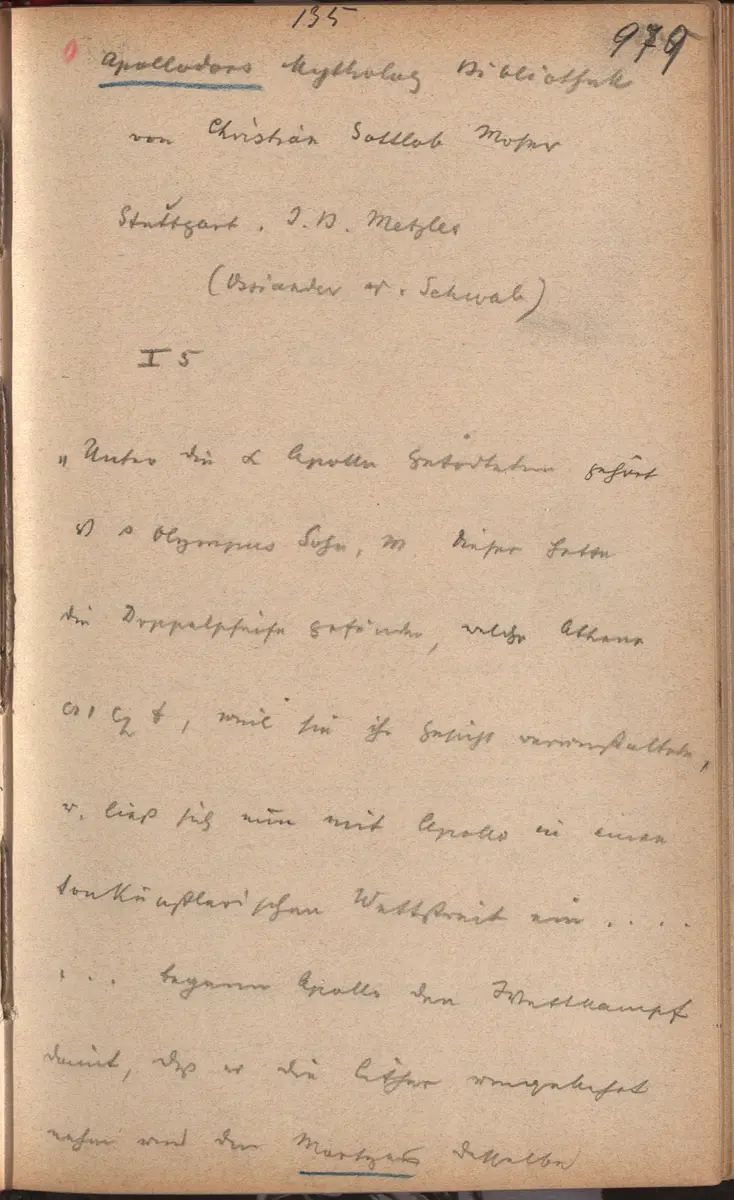 135
979
Apollodors Mytholog Bibliothek
von Christian Gottlob Moser
Stuttgart. J. B. Metzler
(Osiander u. Schwab)
I 5
„Unter die Apollo getödteten gehört
Olympus Sohn, dieser hatte
die Doppelpfeife gefunden, welche Athene
weil sie ihr Gesicht verunstaltete,
u. ließ sich nun mit Apollo in einen
tonkünstlerischen Wettstreit ein . . . .
. . . begann Apollo den Wettkampf
damit, daß er die Cither umgekehrt
nahm und den Marsyas dasselbe